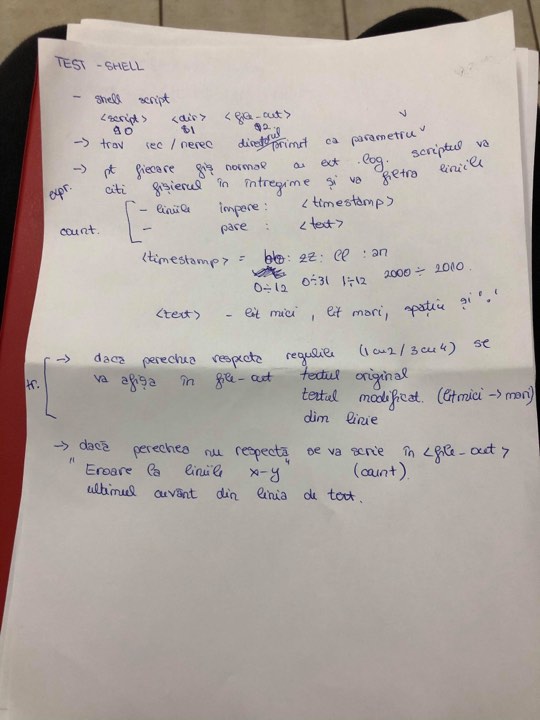 TEST - SHELL
- shell script
<script> <dir> <file-out>
$0 $1 $2
→ trav rec / nerec directorul primit ca parametru
→ pt fiecare fiș normal cu ext .log. scriptul va
citi fișierul în întregime și va filtra liniile
expr.
count.
- liniile impare: <timestamp>
- pare: <text>
<timestamp> = hh: zz: ll: an
0÷12 0÷31 1÷12 2000÷2010
<text> - lit mici, lit mari, spațiu și "."
tr.
→ daca perechea respecta regulile (1 cu 2 / 3 cu 4) se
va afișa în file-out textul original
textul modificat. (lit mici → mari)
dim linie
→ dacă perechea nu respectă se va scrie în <file-out>
"Eroare la liniile x-y" (count)
ultimul cuvânt din linia de text.